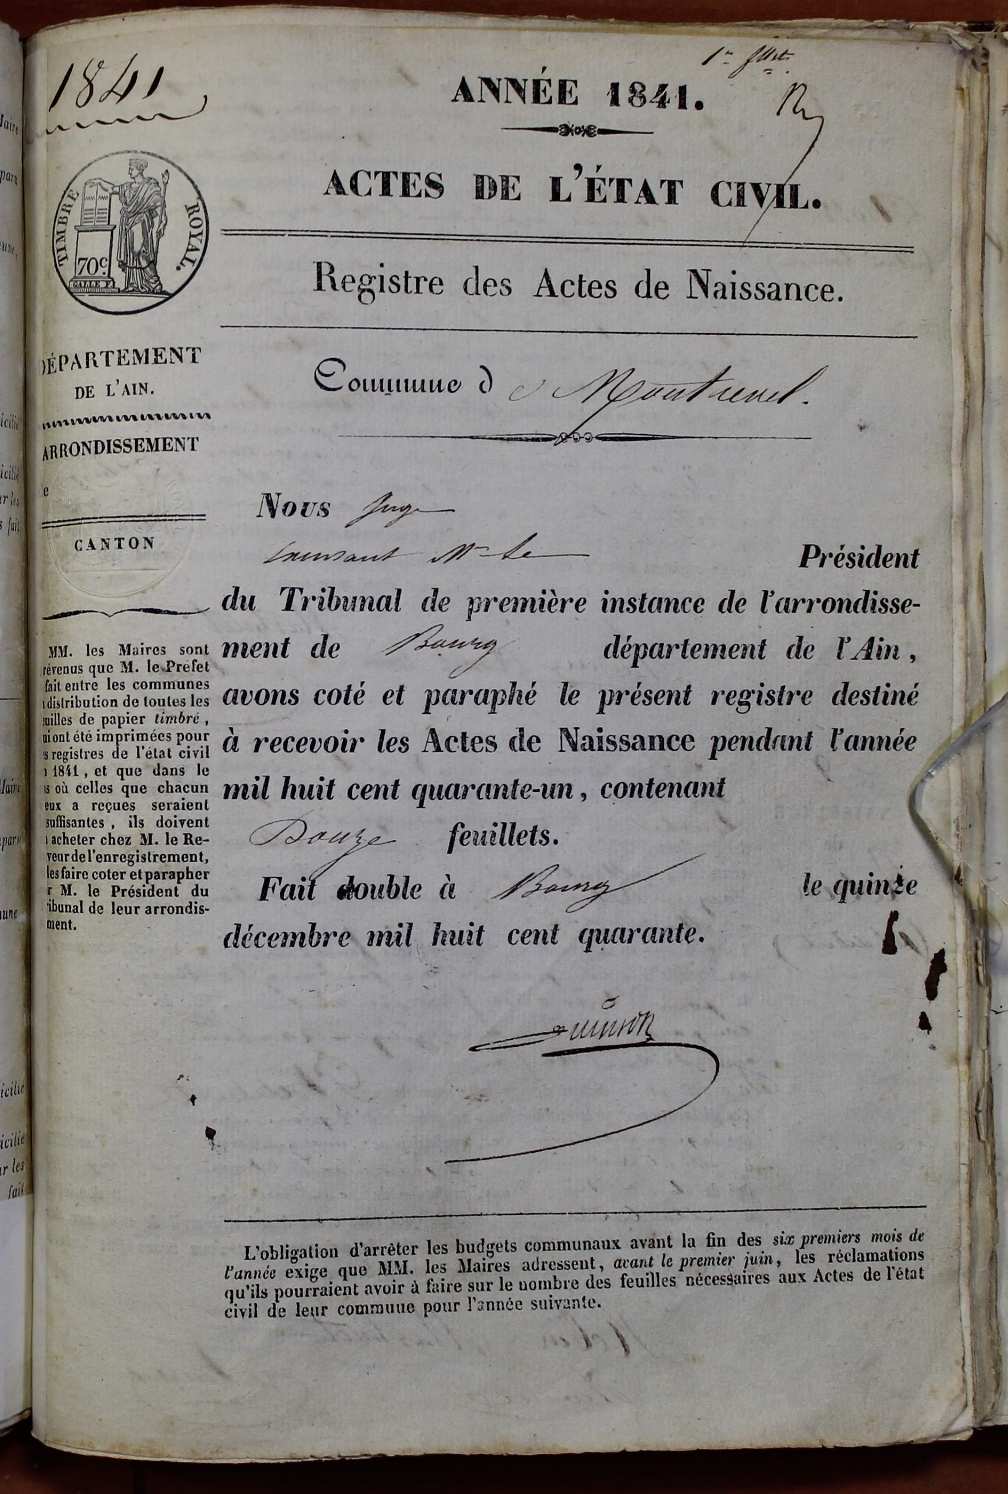 1841
1er fllet
ANNÉE 1841.
ACTES DE L'ÉTAT CIVIL.
TIMBRE ROYAL.
70c
Registre des Actes de Naissance.
Commune de Montrevel.
DÉPARTEMENT
DE L'AIN.
ARRONDISSEMENT
e
CANTON
MM. les Maires sont
révenus que M. le Préfet
fait entre les communes
distribution de toutes les
uilles de papier timbré,
ui ont été imprimées pour
s registres de l'état civil
1841, et que dans le
s où celles que chacun
eux a reçues seraient
suffisantes, ils doivent
acheter chez M. le Re-
veur de l'enregistrement,
les faire coter et parapher
r M. le Président du
ibunal de leur arrondis-
ment.
Nous Juge
Mr le Président
du Tribunal de première instance de l'arrondisse-
ment de Bourg département de l'Ain,
avons coté et paraphé le présent registre destiné
à recevoir les Actes de Naissance pendant l'année
mil huit cent quarante-un, contenant
Douze feuillets.
Fait double à Bourg le quinze
décembre mil huit cent quarante.
L'obligation d'arrêter les budgets communaux avant la fin des six premiers mois de
l'année exige que MM. les Maires adressent, avant le premier juin, les réclamations
qu'ils pourraient avoir à faire sur le nombre des feuilles nécessaires aux Actes de l'état
civil de leur commune pour l'année suivante.